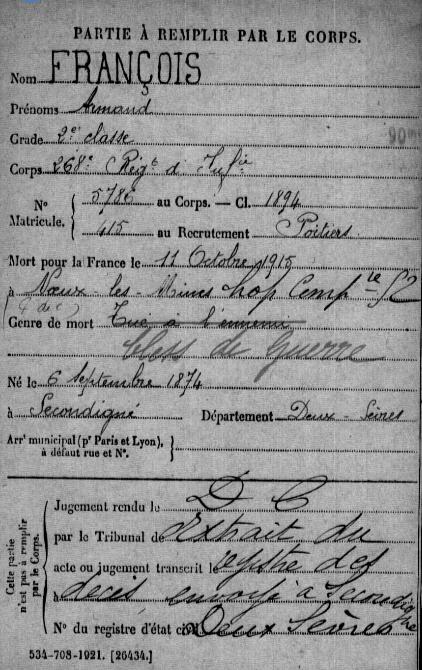 PARTIE À REMPLIR PAR LE CORPS.
Nom FRANÇOIS
Prénoms Armand
Grade 2e classe 90me
Corps 268e Régt d'Infie
Nº Matricule. { 5786 au Corps. — Cl. 1894
415 au Recrutement Poitiers
Mort pour la France le 11 Octobre 1915
à Noeux-les-Mines hop Compre 52
Genre de mort Tué à l'ennemi
bless de Guerre
Né le 6 septembre 1874
à Secondigné Département Deux-Sèvres
Arrt municipal (pr Paris et Lyon), à défaut rue et Nº. }
Cette partie n'est pas à remplir par le Corps.
Jugement rendu le D C
par le Tribunal de Extrait du
acte ou jugement transcrit le registre des
à décès envoyé à Secondigné
Nº du registre d'état civil Deux Sèvres
534-708-1921. [26434.]